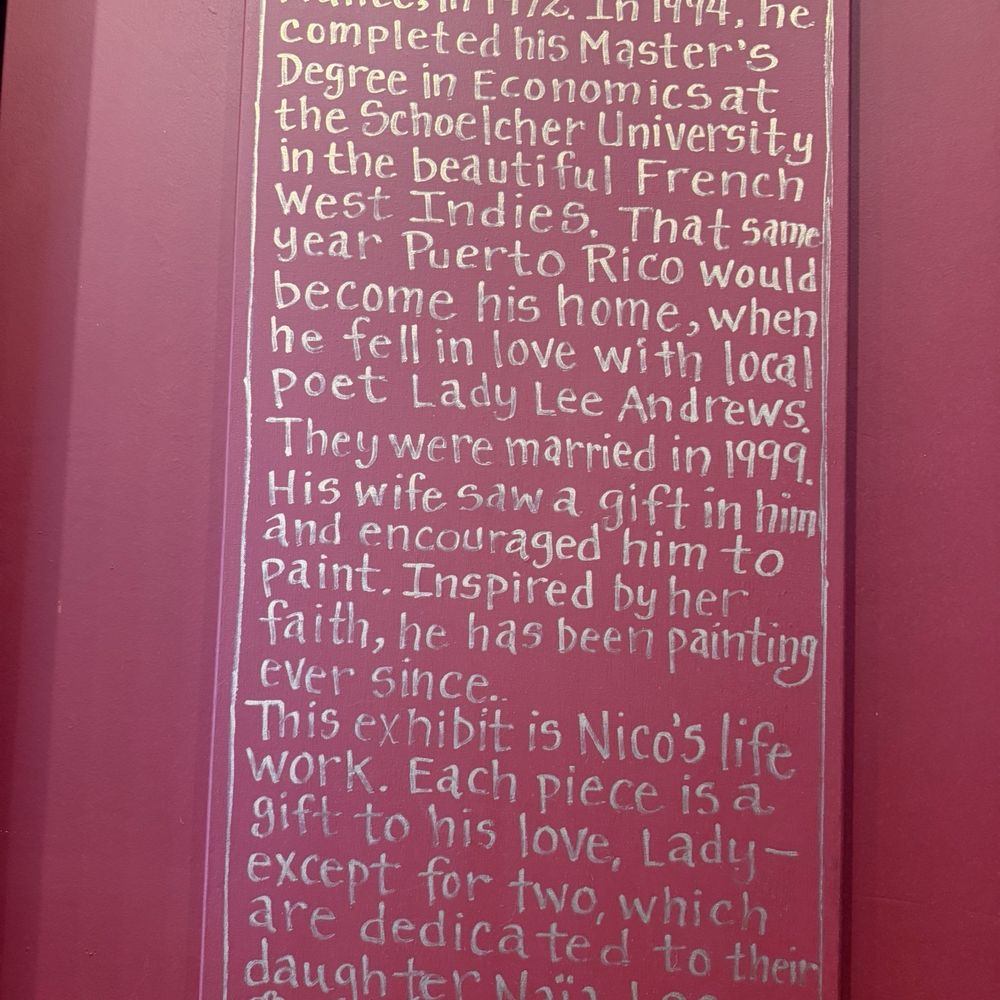 France, in 1972. In 1994, he
completed his Master's
Degree in Economics at
the Schoelcher University
in the beautiful French
West Indies. That same
year Puerto Rico would
become his home, when
he fell in love with local
poet Lady Lee Andrews.
They were married in 1999.
His wife saw a gift in him
and encouraged him to
paint. Inspired by her
faith, he has been painting
ever since..
This exhibit is Nico's life
work. Each piece is a
gift to his love, Lady—
except for two, which
are dedicated to their
daughter Naïa Lee